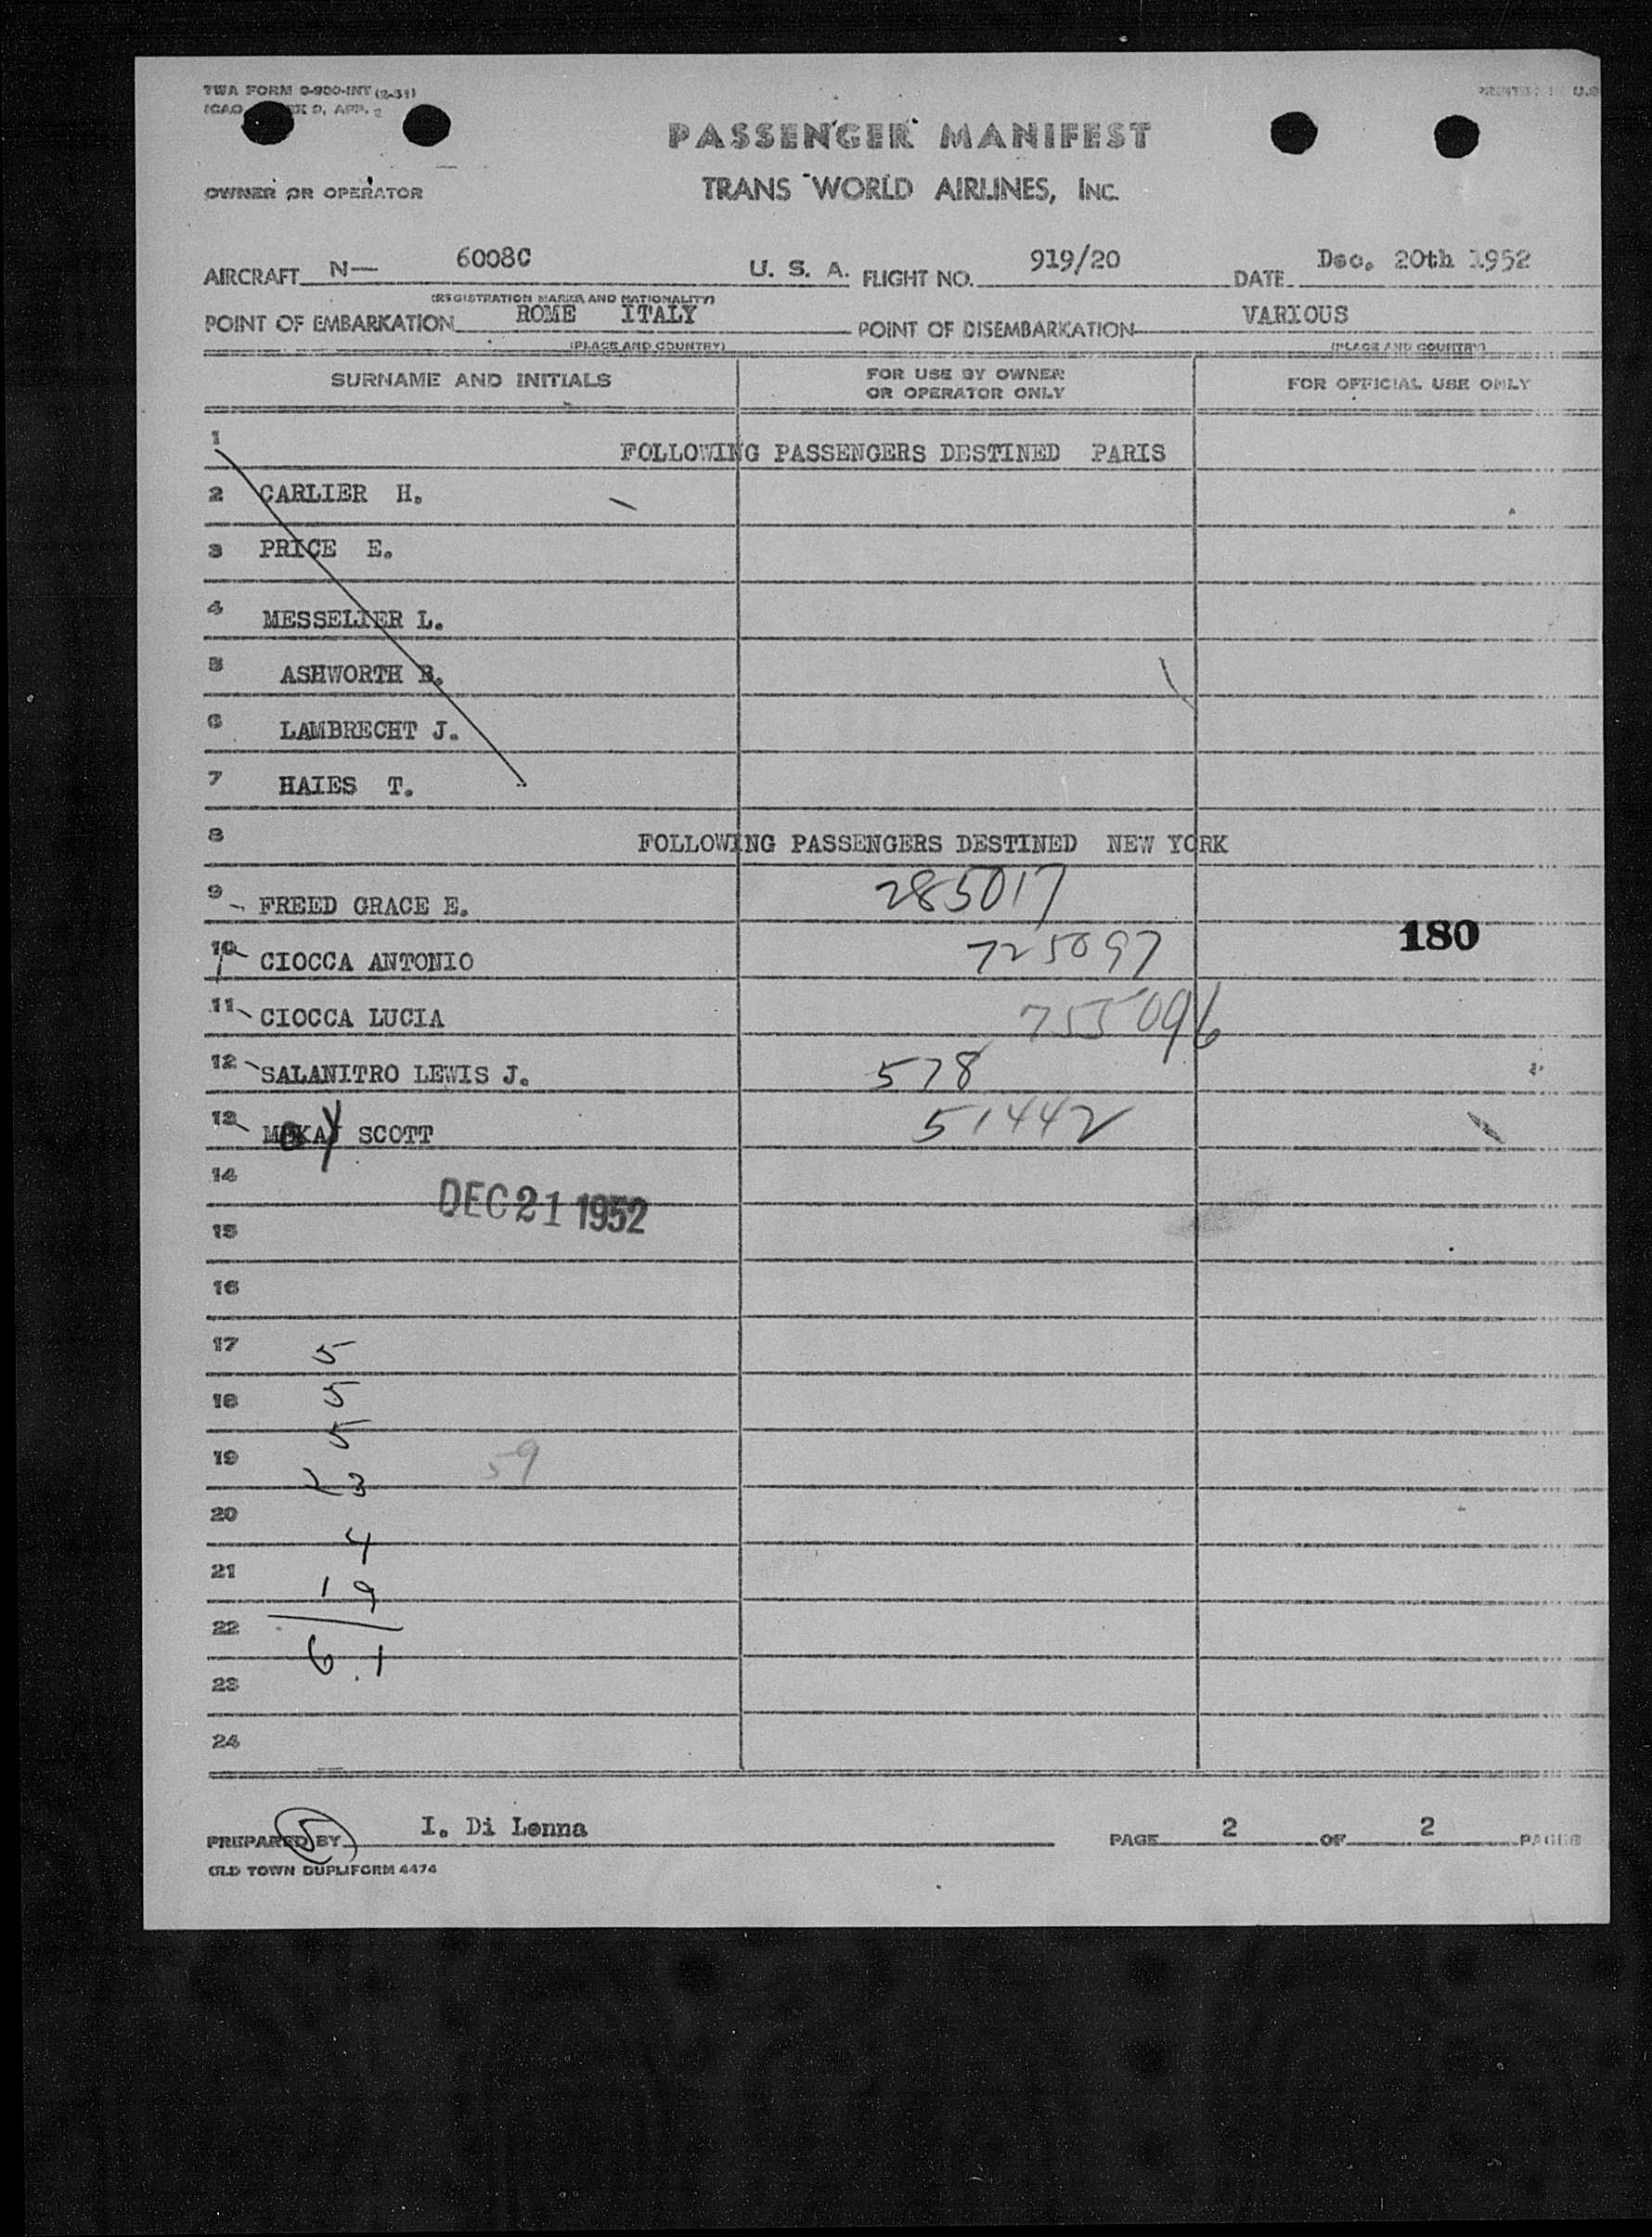 TWA FORM 0-900-INT (2-51)
ICAO 9, APP. 2
PRINTED IN U.S
PASSENGER MANIFEST
OWNER OR OPERATOR
TRANS WORLD AIRLINES, INC.
AIRCRAFT N— 6008C U. S. A. FLIGHT NO. 919/20 DATE Dec. 20th 1952
(REGISTRATION MARKS AND NATIONALITY)
POINT OF EMBARKATION ROME ITALY POINT OF DISEMBARKATION VARIOUS
(PLACE AND COUNTRY) (PLACE AND COUNTRY)
SURNAME AND INITIALS FOR USE BY OWNER OR OPERATOR ONLY FOR OFFICIAL USE ONLY
1 FOLLOWING PASSENGERS DESTINED PARIS
2 CARLIER H.
3 PRICE E.
4 MESSELIER L.
5 ASHWORTH B.
6 LAMBRECHT J.
7 HAIES T.
8 FOLLOWING PASSENGERS DESTINED NEW YORK
9 FREED GRACE E. 285017
10 CIOCCA ANTONIO 725097 180
11 CIOCCA LUCIA 755096
12 SALANITRO LEWIS J. 578
13 McKAY SCOTT 51442
14
DEC 21 1952
15
16
17 5
18 5
5
19 59
23
20
4
21
19
22
61
23
24
PREPARED BY 5 I. Di Lenna PAGE 2 OF 2 PAGES
OLD TOWN DUPLIFORM 4474